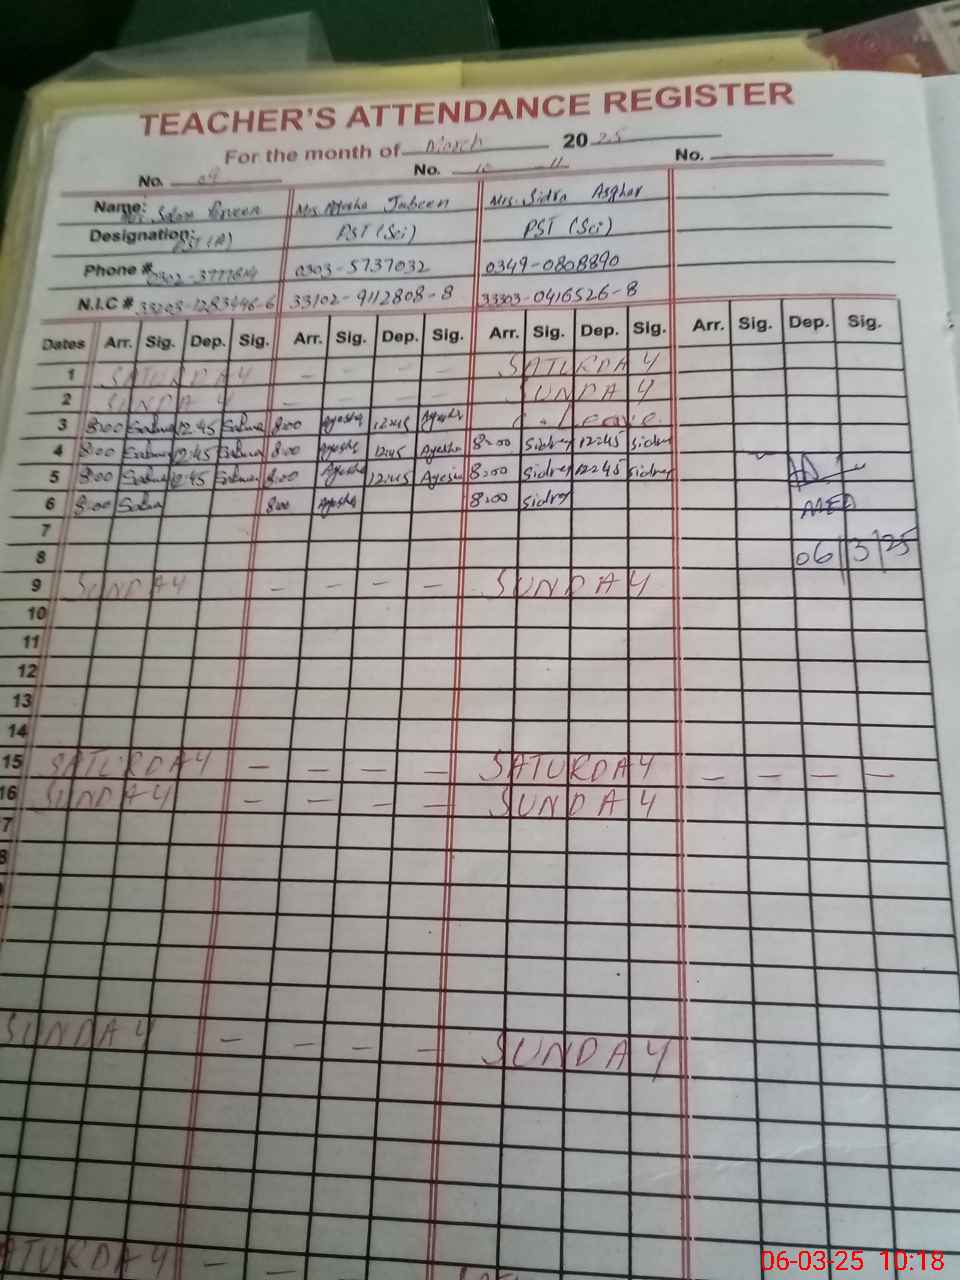 TEACHER'S ATTENDANCE REGISTER
For the month of March 2025
No. 09 No. 10 11 No.
Name: Parveen Mrs. Ayesha Jabeen Mrs. Sidra Asghar
Designation: PST (A) PST (Sci) PST (Sci)
Phone # 0303-5737032 0349-0808890
N.I.C # 33203-1283446-6 33102-9112808-8 33303-0416526-8
Dates Arr. Sig. Dep. Sig. Arr. Sig. Dep. Sig. Arr. Sig. Dep. Sig. Arr. Sig. Dep. Sig.
1 SATURDAY - - - - SATURDAY
2 SUNDAY - - - - SUNDAY
3 8:00 Salma 12:45 Salma 8:00 Ayesha 12:45 Ayesha Leave
4 8:00 Salma 12:45 Salma 8:00 Ayesha 12:45 Ayesha 8:00 Sidra 12:45 Sidra
5 8:00 Salma 12:45 Salma 8:00 Ayesha 12:45 Ayesha 8:00 Sidra 12:45 Sidra
6 8:00 Salma 8:00 Ayesha 8:00 Sidra MEA
7
8 06/3/25
9 SUNDAY - - - - SUNDAY
10
11
12
13
14
15 SATURDAY - - - - SATURDAY - - - -
16 SUNDAY - - - - SUNDAY
7
8
SUNDAY - - - - SUNDAY
ATURDAY - -
06-03-25 10:18